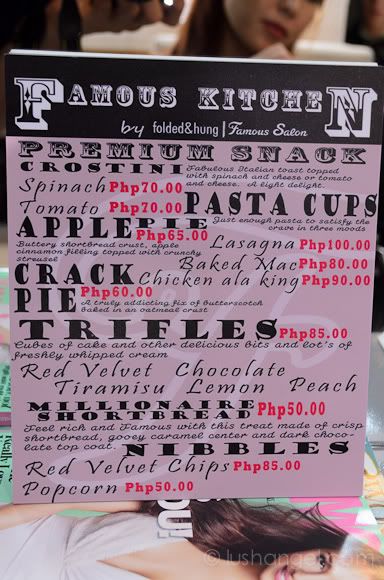 FAMOUS KITCHEN
by folded&hung | Famous Salon
PREMIUM SNACK
CROSTINI
Fabulous Italian toast topped
with spinach and cheese or tomato
and cheese. A light delight.
Spinach Php70.00
Tomato Php70.00
PASTA CUPS
Just enough pasta to satisfy the
crave in three moods
APPLE PIE Php65.00
Buttery shortbread crust, apple
cinnamon filling topped with crunchy
streusel
Lasagna Php100.00
Baked Mac Php80.00
Chicken ala king Php90.00
CRACK
PIE Php60.00
A truly addicting fix of butterscotch
baked in an oatmeal crust
TRIFLES Php85.00
Cubes of cake and other delicious bits and lot's of
freshly whipped cream
Red Velvet Chocolate
Tiramisu Lemon Peach
MILLIONAIRE
SHORTBREAD Php50.00
Feel rich and Famous with this treat made of crisp
shortbread, gooey caramel center and dark choco-
late top coat.
NIBBLES
Red Velvet Chips Php85.00
Popcorn Php50.00
© lushangel.com